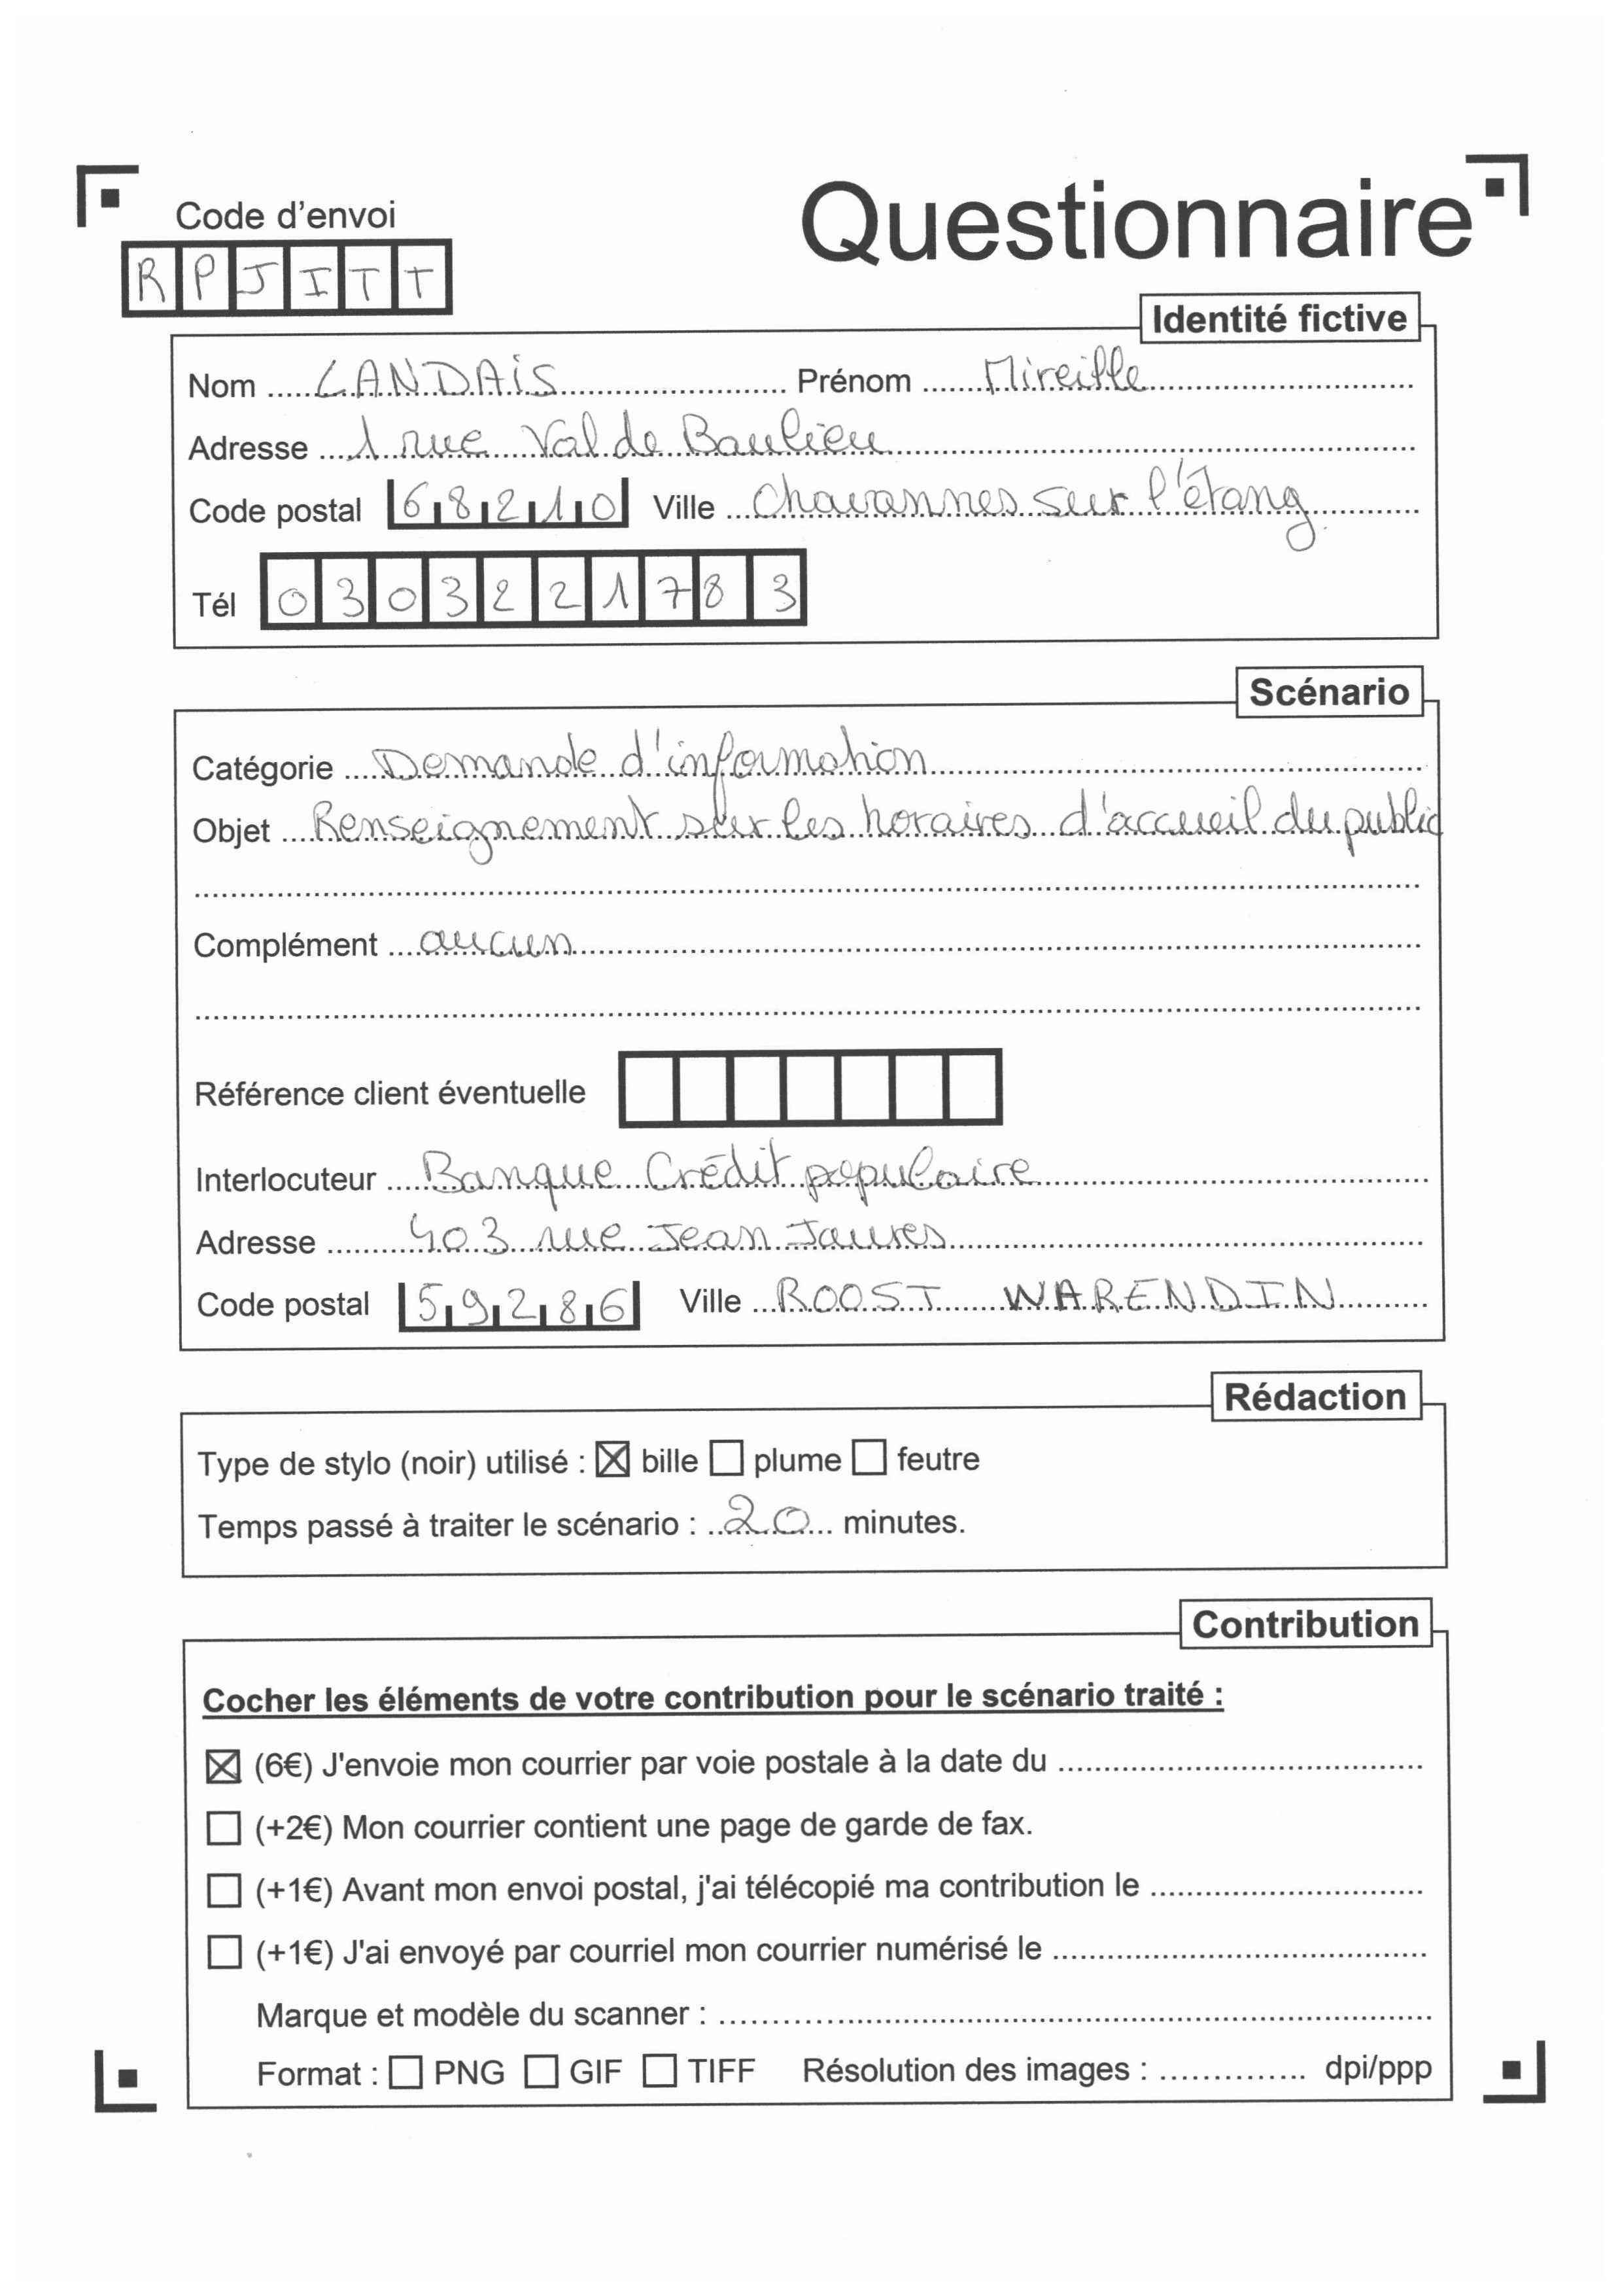 Code d'envoi
Questionnaire
RPJITT
Identité fictive
Nom LANDAIS Prénom Mireille
Adresse 1 rue Val de Baulieu
Code postal 68210 Ville Chavannes sur l'étang
Tél 0303221783
Scénario
Catégorie Demande d'information
Objet Renseignement sur les horaires d'accueil du public
Complément aucun
Référence client éventuelle
Interlocuteur Banque Crédit populaire
Adresse 403 rue Jean Jaures
Code postal 59286 Ville ROOST WARENDIN
Rédaction
Type de stylo (noir) utilisé : ☒ bille ☐ plume ☐ feutre
Temps passé à traiter le scénario : 20 minutes.
Contribution
Cocher les éléments de votre contribution pour le scénario traité :
☒ (6€) J'envoie mon courrier par voie postale à la date du
☐ (+2€) Mon courrier contient une page de garde de fax.
☐ (+1€) Avant mon envoi postal, j'ai télécopié ma contribution le
☐ (+1€) J'ai envoyé par courriel mon courrier numérisé le
Marque et modèle du scanner :
Format : ☐ PNG ☐ GIF ☐ TIFF Résolution des images : dpi/ppp